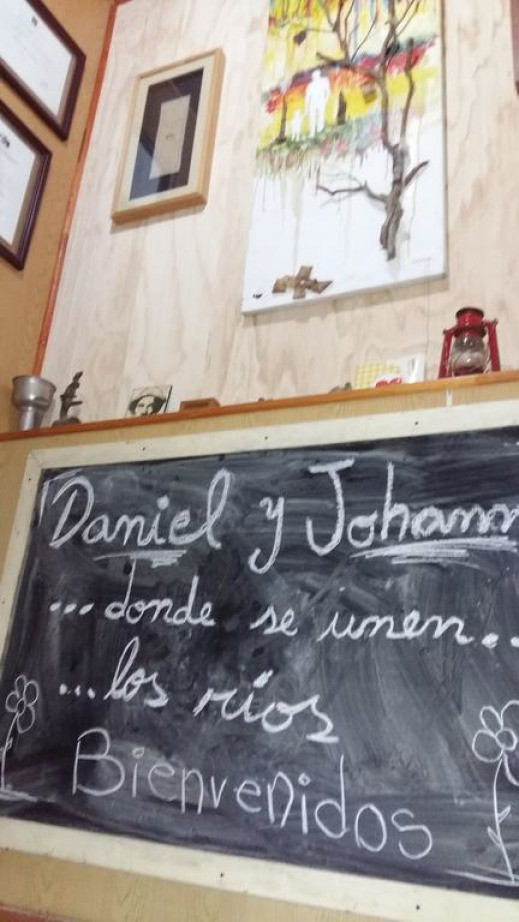 Daniel y Johann
...donde se unen..
...los ríos
Bienvenidos